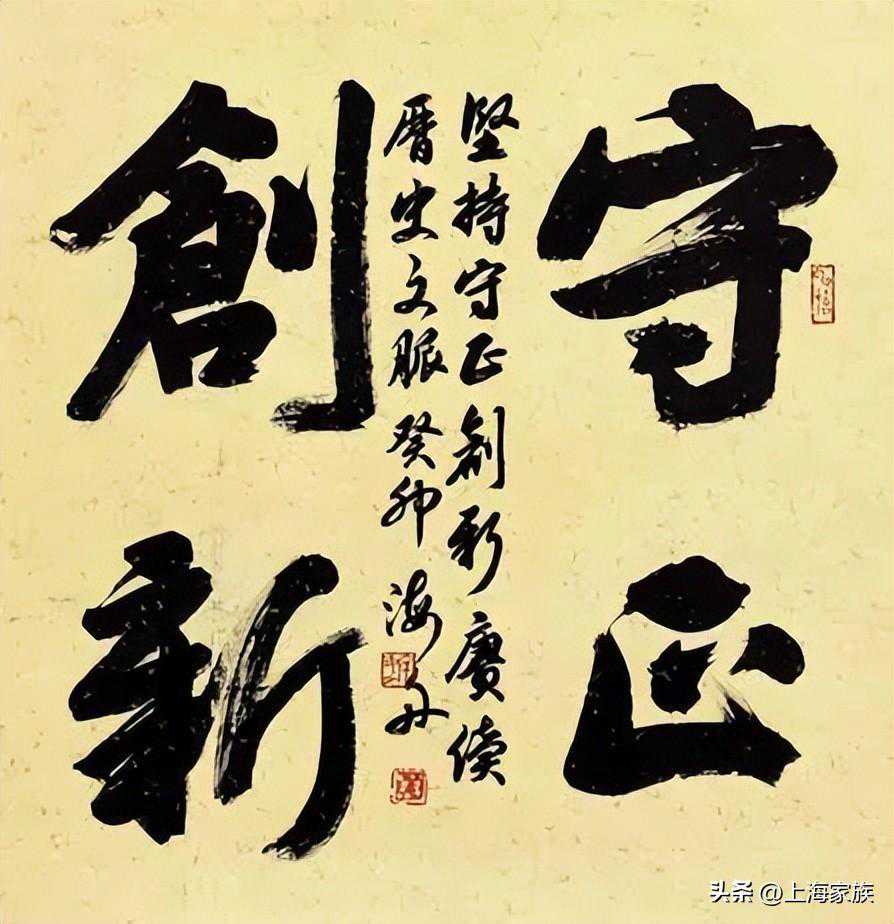 守正
創新
堅持守正創新賡續
曆史文脈癸卯海
头条 @上海家族